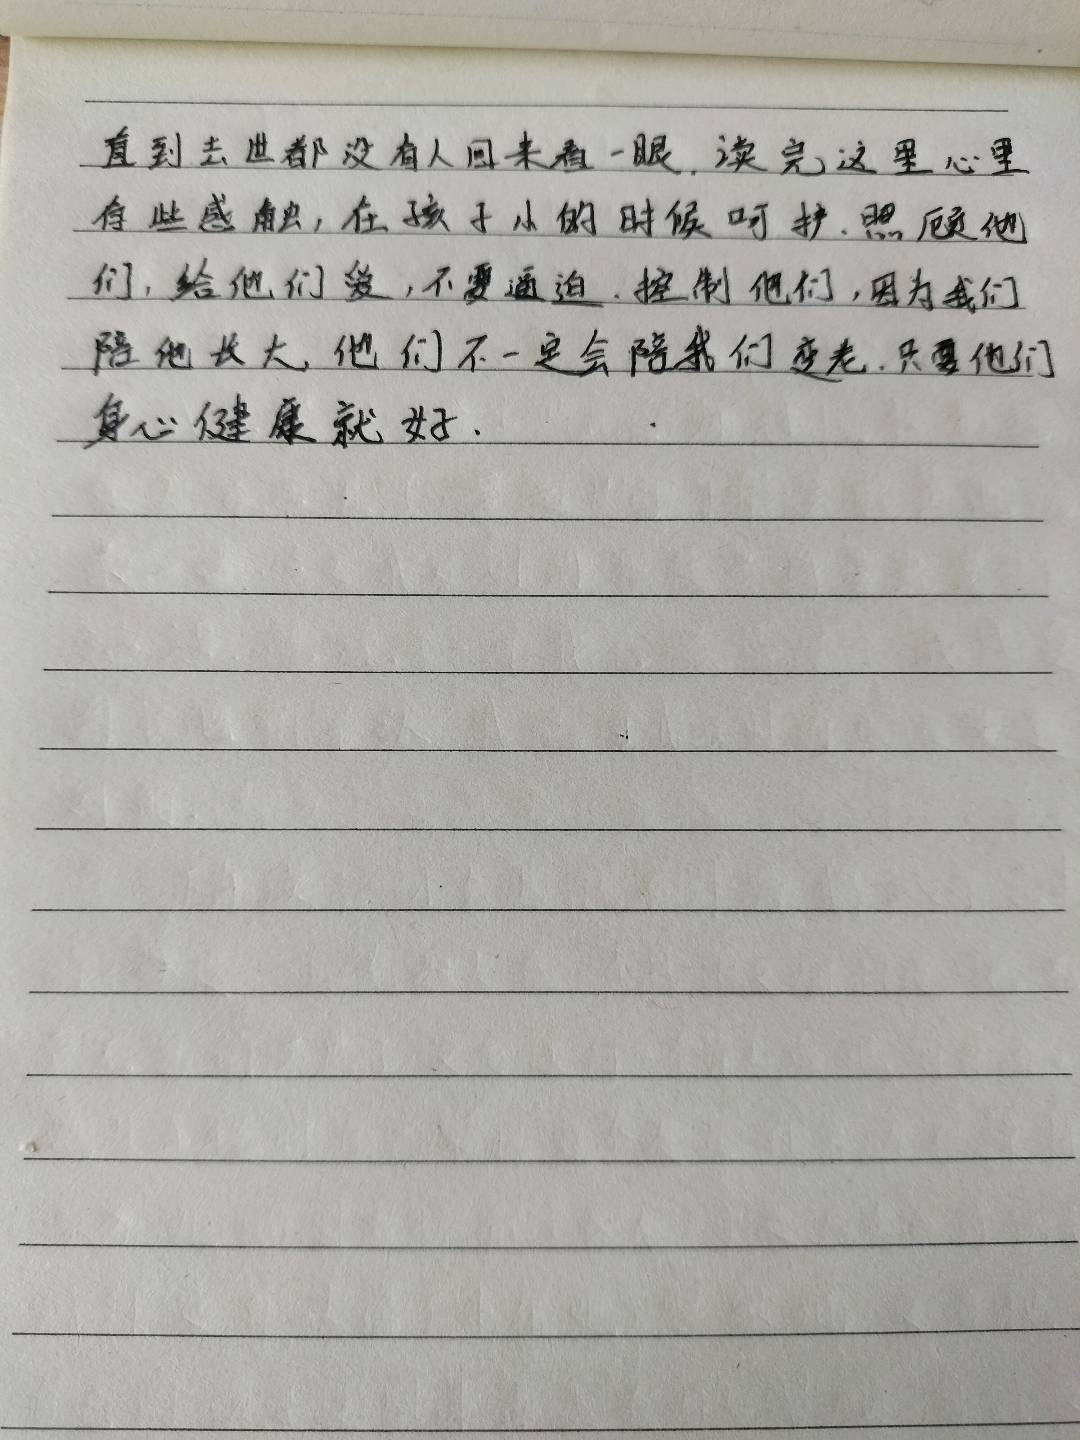 直到去世都没有人回来看一眼.读完这里心里
有些感触,在孩子小的时候呵护.照顾他
们,给他们爱,不要逼迫.控制他们,因为我们
陪他长大,他们不一定会陪我们变老.只要他们
身心健康就好.